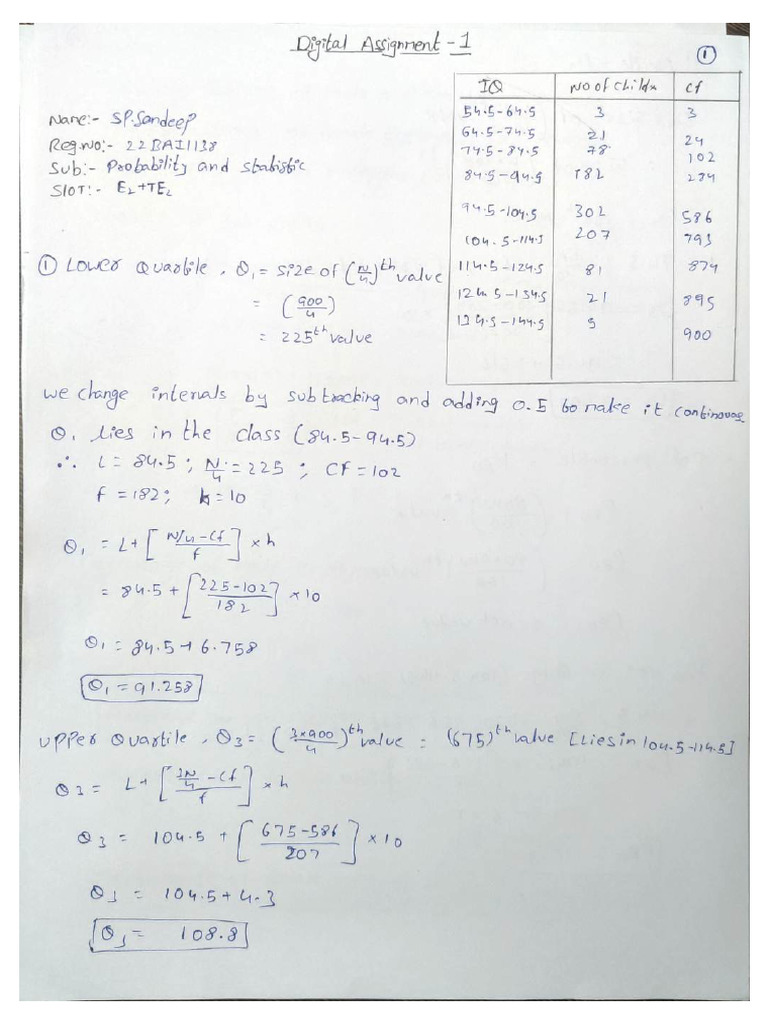 Digital Assignment - 1
1
Name:- SP.Sandeep
Reg.no:- 22BAI1138
Sub:- Probability and statistic
SLOT:- E2+TE2
IQ	NO of Childn	cf
54.5-64.5	3	3
64.5-74.5	21	24
74.5-84.5	78	102
84.5-94.5	182	284
94.5-104.5	302	586
104.5-114.5	207	793
114.5-124.5	81	874
124.5-134.5	21	895
134.5-144.5	5	900
① Lower Quartile, Q1 = size of (N/4)th value
= (900/4)
= 225th value
we change intervals by subtracking and adding 0.5 to make it continouse
Q1 lies in the class (84.5-94.5)
∴ L = 84.5 ; N/4 = 225 ; Cf = 102
f = 182; h = 10
Q1 = L + [N/4 - Cf / f] × h
= 84.5 + [225-102 / 182] × 10
Q1 = 84.5 + 6.758
Q1 = 91.258
Upper Quartile, Q3 = (3×900/4)th value = (675)th value [Lies in 104.5-114.5]
Q3 = L + [3N/4 - Cf / f] × h
Q3 = 104.5 + [675-586 / 207] × 10
Q3 = 104.5 + 4.3
Q3 = 108.8